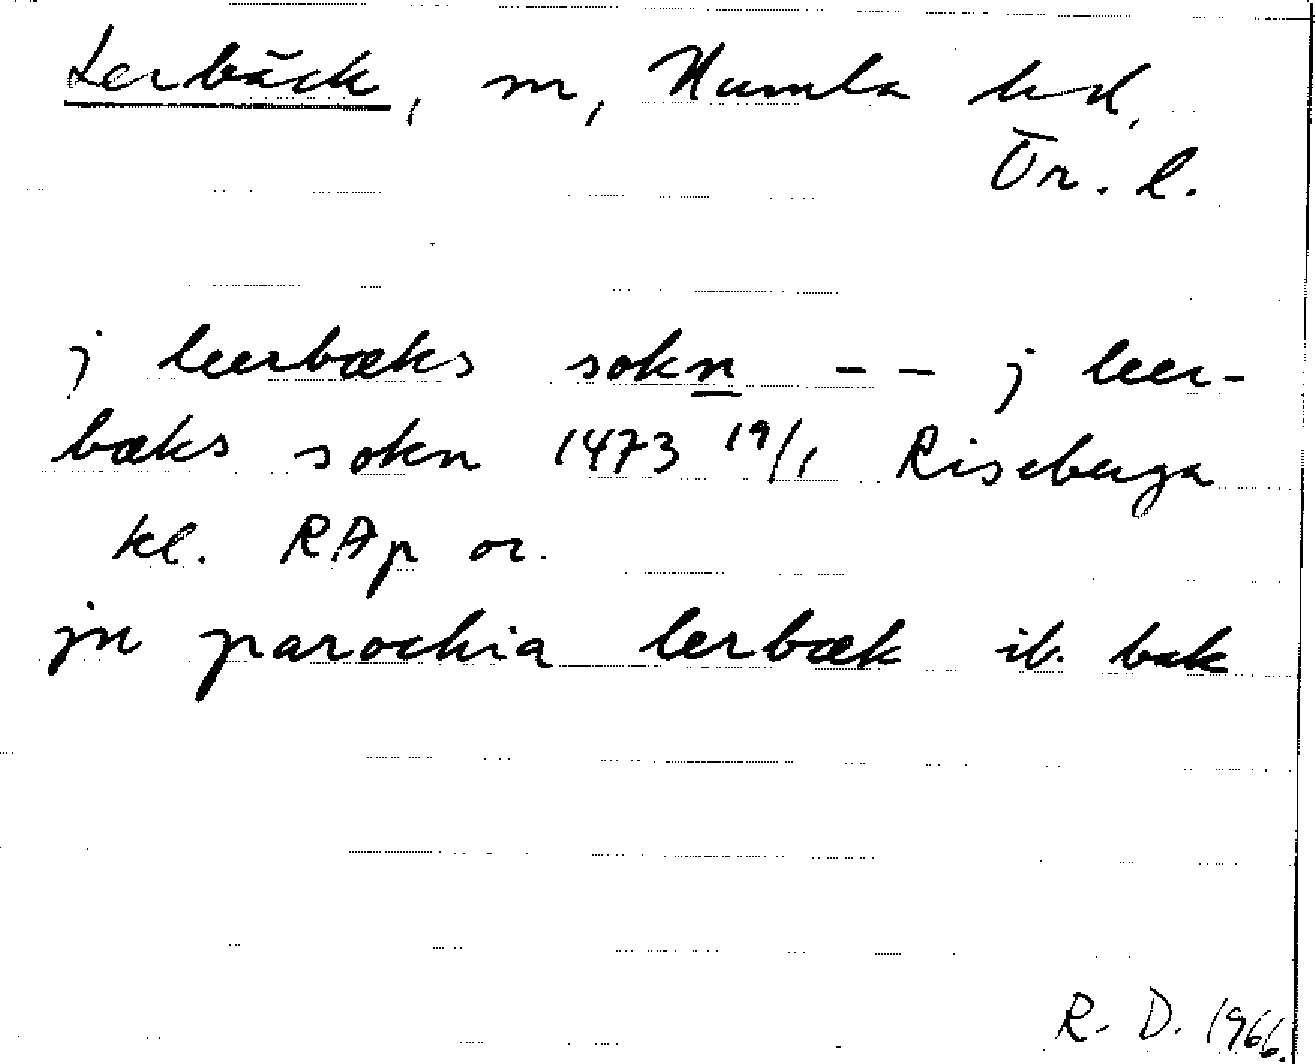 Lerbäck, sn, Kumla hd,
Ör. l.
j leerbæks sokn -- j leer-
bæks sokn 1473 19/1 Riseberga
kl. RAp or.
jn parochia lerbæk ib. bak
R. D. 1966.